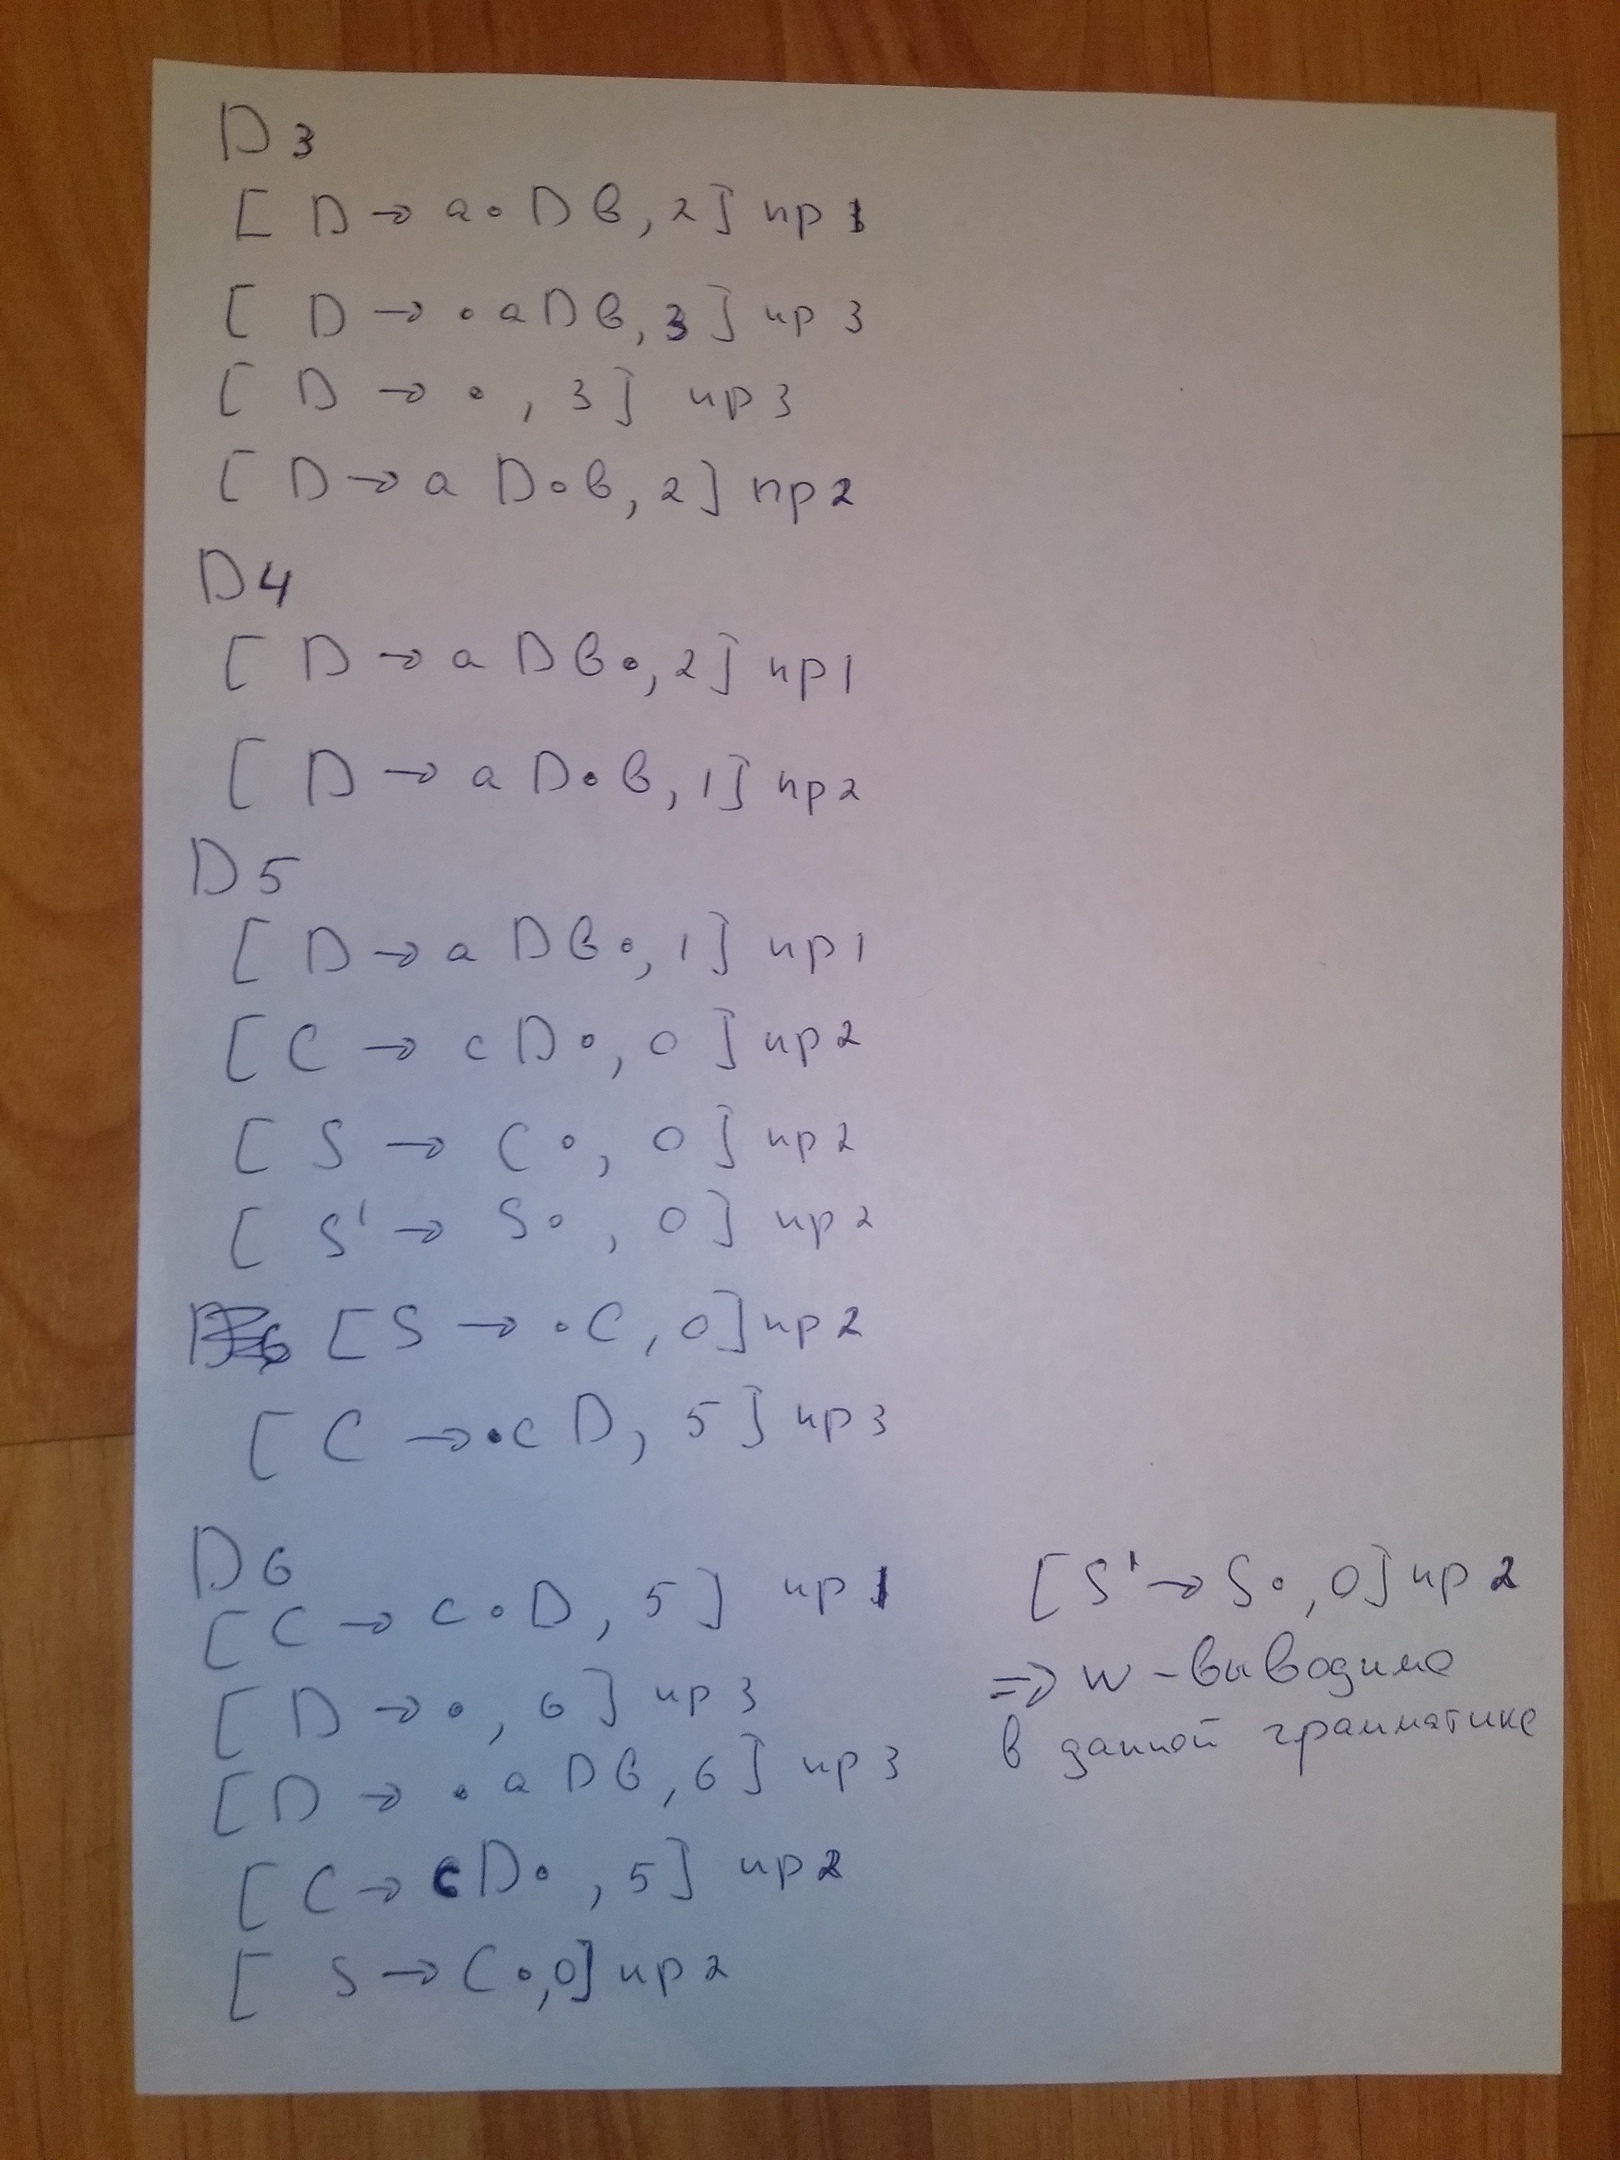 D3
[ D → a•Dв, 2] пр 1
[ D → •aDв, 3] пр 3
[ D → •, 3] пр3
[ D → a D•в, 2] пр2
D4
[ D → a Dв•, 2] пр1
[ D → a D•в, 1] пр2
D5
[ D → a Dв•, 1] пр1
[ C → cD•, 0] пр2
[ S → C•, 0] пр2
[ S' → S•, 0] пр2
[ S → •C, 0] пр2
[ C → •cD, 5] пр3
D6
[ C → c•D, 5] пр1
[ D → •, 6] пр3
[ D → •aDв, 6] пр3
[ C → cD•, 5] пр2
[ S → C•, 0] пр2
[ S' → S•, 0] пр2
⇒ w - выводимо
в данной грамматике